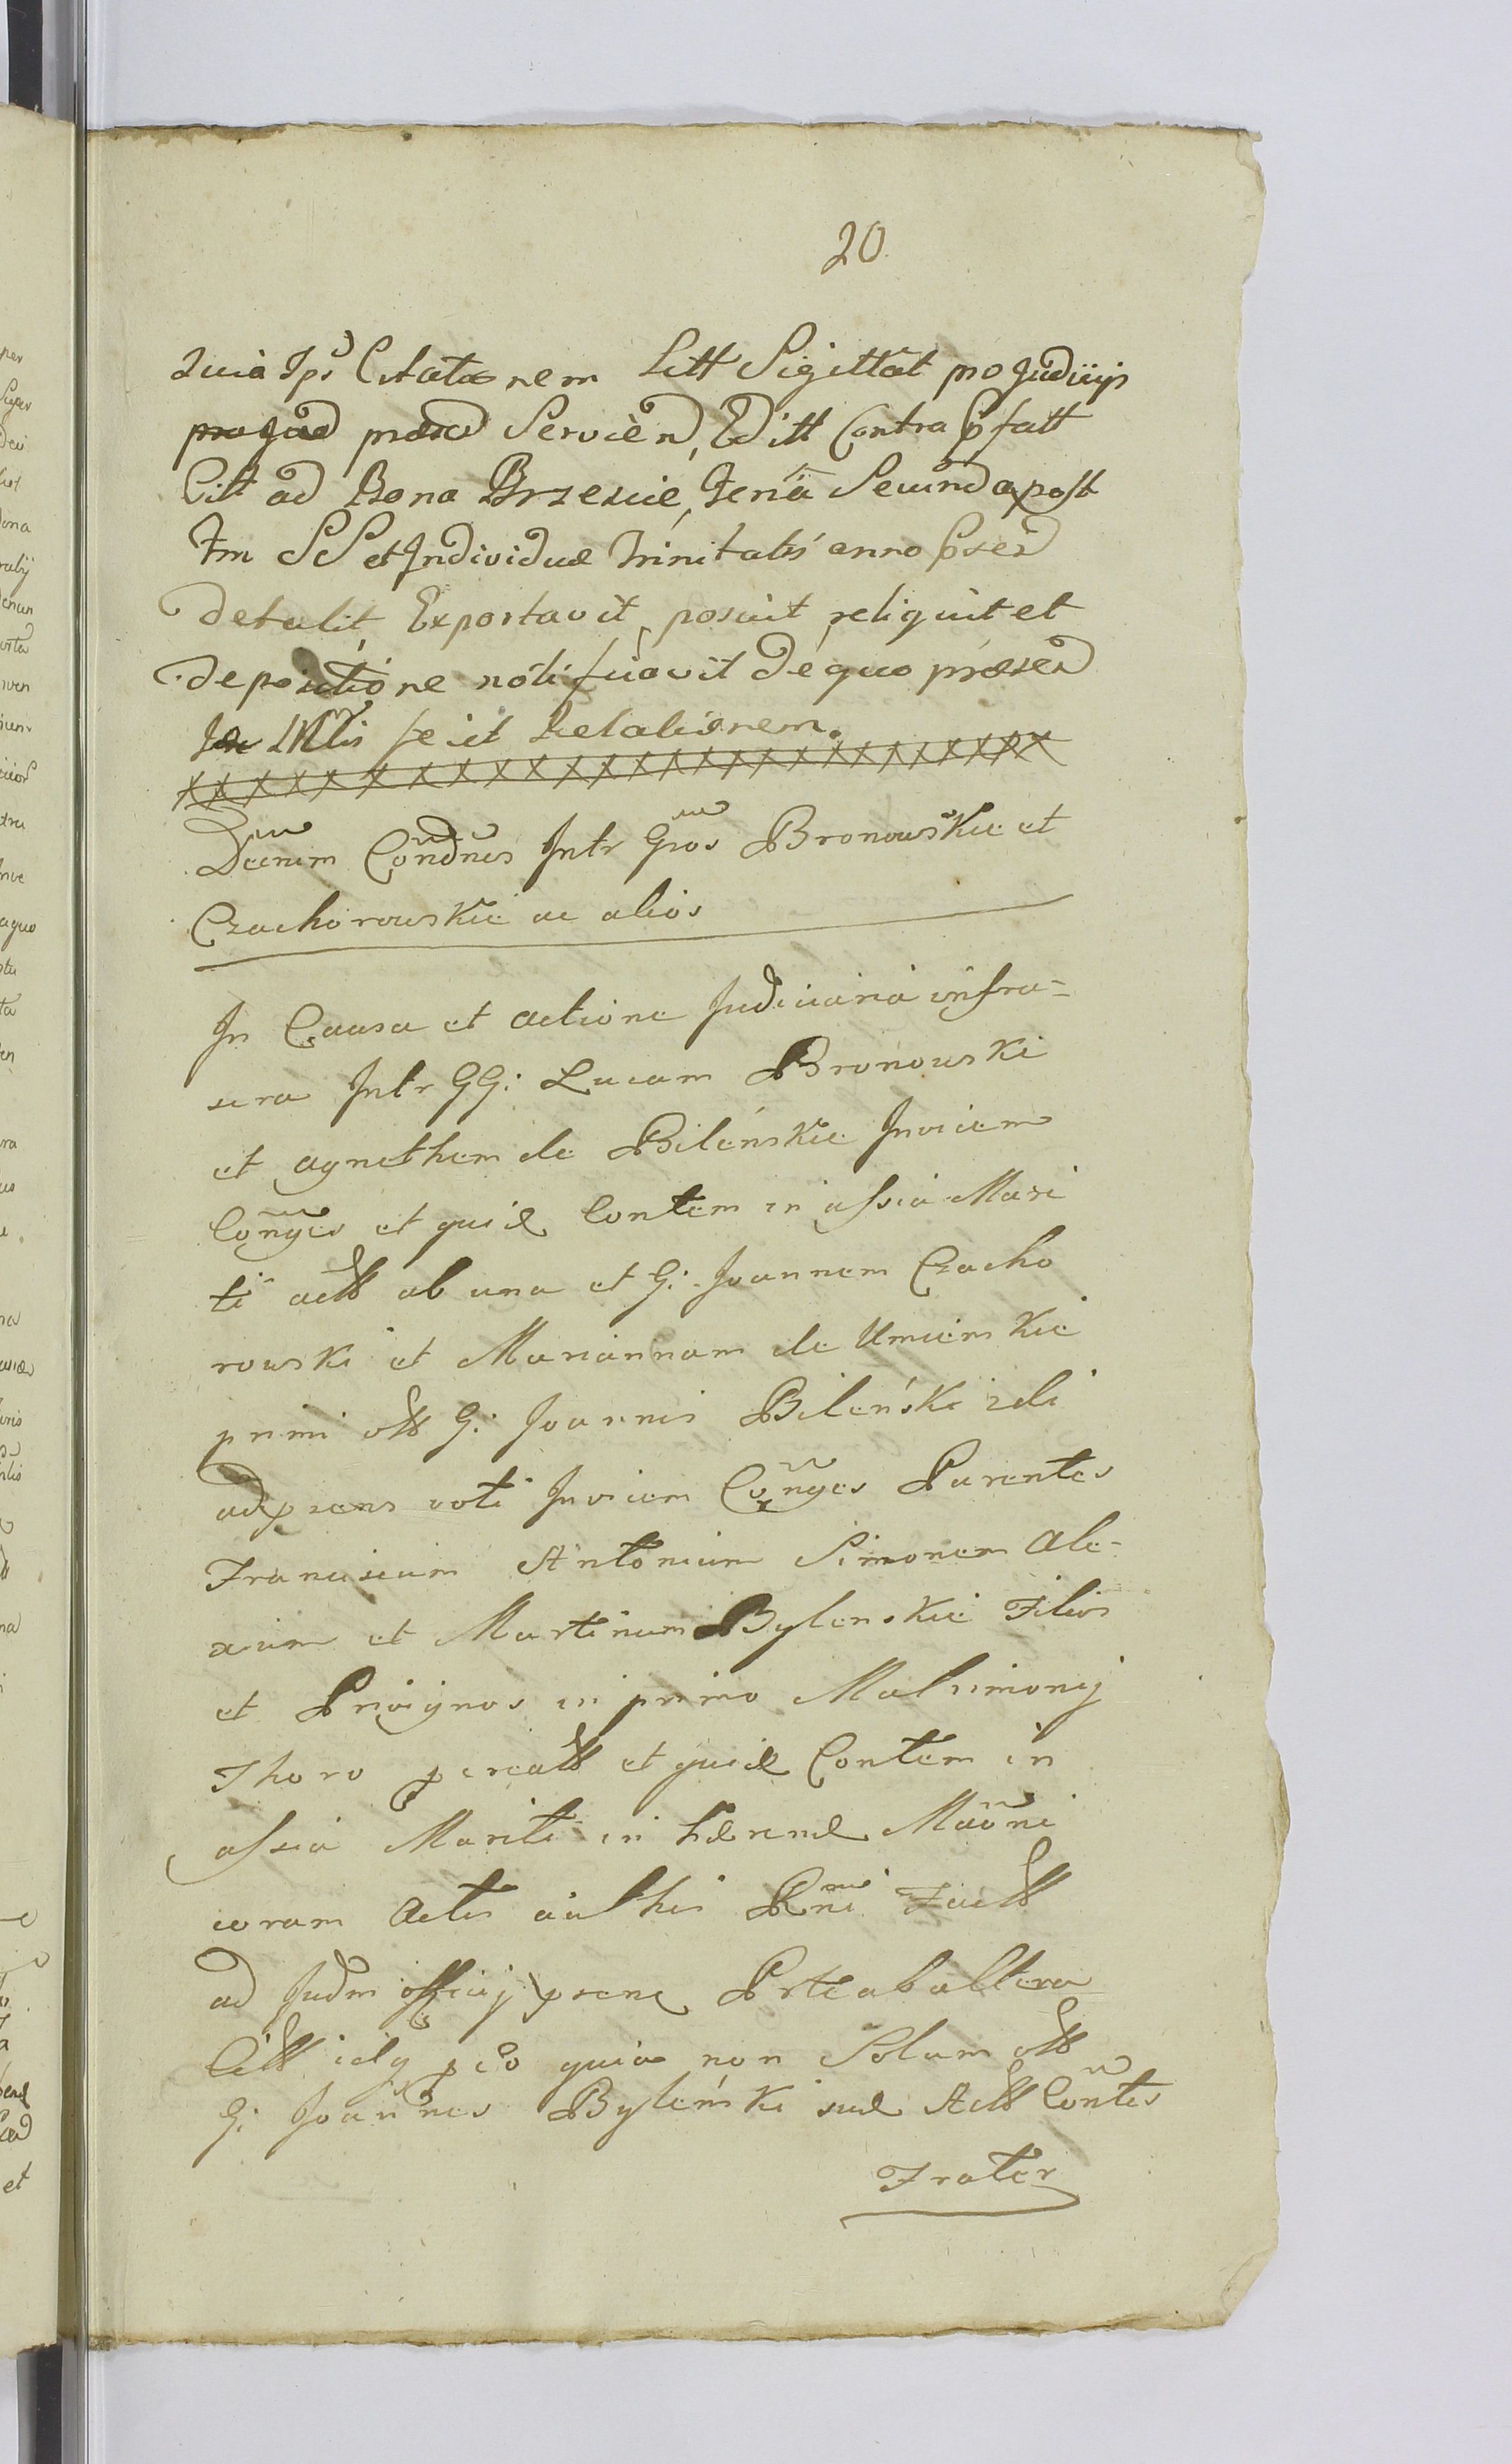 20
quia Ips Citationem Litt Sigittat pro Judicijs
præsed Servien, Editt Contra Pfatt
Citt ad Bona Brzescie, Feria Secunda post
Fm SS et Individuæ Trinitatis anno Pred
detulit, Exportavit, posuit, reliquit et
depositione notificavit de quo præsed
fecit Relationem.
Decrum Condnes Intr Gros Bronowskie et
Czachorowskie ac alios
In Causa et actione Judiciaria infra-
scra Intr GG: Lucam Bronowski
et agnethem de Bileńskie Invicem
Conges et quid Contem in assia Mari
ti actt ab una et G: Joannem Czacho
rowski et Mariannam de Umienskie
primi ott G: Joannis Bileński 2di
ad prens voti Invicem Conges Parentes
Franciscum Antonium Simonem Ale-
xium et Martinum Bylenskie Filios
et Privignos in primo Matrimonij
Thoro pcreatt et quid Contem in
assia Mariti in
coram Actis
ad Judm officij prens Prte ab altera
Citt idq peo quia non Solum ott
G: Joannes Byleński suæ Actt Contes
Frater